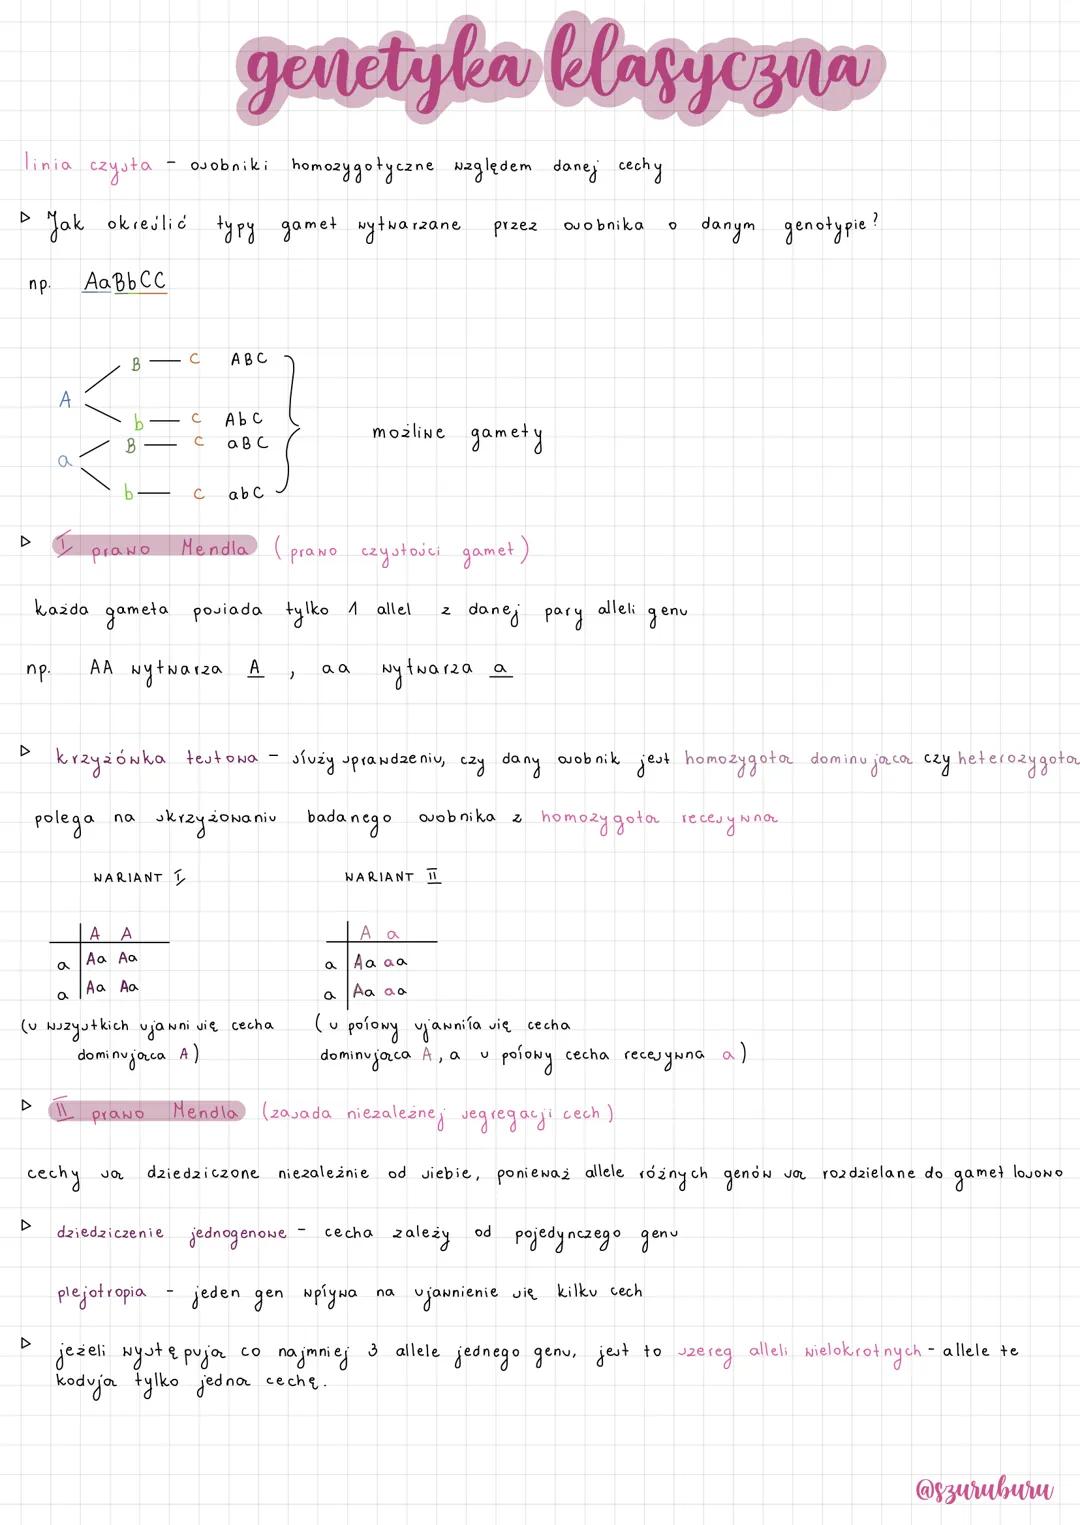 genetyka klasyczna
linia czysta - osobniki homozygotyczne względem danej cechy
▷ Jak określić typy gamet wytwarzane przez osobnika o danym genotypie?
np. AaBbCC
B — C ABC
A
b — C AbC
B — C aBC
możliwe gamety
a
b — C abC
▷ I prawo Mendla (prawo czystości gamet)
każda gameta posiada tylko 1 allel z danej pary alleli genu
np. AA wytwarza A, aa wytwarza a
▷ krzyżówka testowa - służy sprawdzeniu, czy dany osobnik jest homozygotą dominującą czy heterozygotą
polega na skrzyżowaniu badanego osobnika z homozygotą recesywną
WARIANT I WARIANT II
A A A a
a Aa Aa a Aa aa
a Aa Aa a Aa aa
(u wszystkich ujawni się cecha (u połowy ujawniła się cecha
dominująca A) dominująca A, a u połowy cecha recesywna a)
▷ II prawo Mendla (zasada niezależnej segregacji cech)
cechy są dziedziczone niezależnie od siebie, ponieważ allele różnych genów są rozdzielane do gamet losowo
▷ dziedziczenie jednogenowe - cecha zależy od pojedynczego genu
plejotropia - jeden gen wpływa na ujawnienie się kilku cech
▷ jeżeli występują co najmniej 3 allele jednego genu, jest to szereg alleli wielokrotnych - allele te
kodują tylko jedną cechę.
@szuruburu